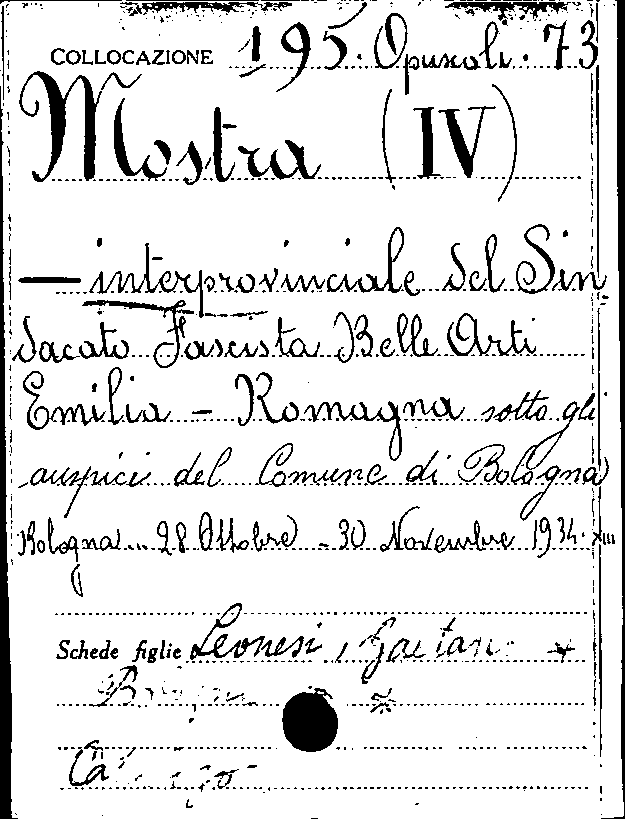 COLLOCAZIONE 195. Opuscoli. 73
Mostra (IV)
— interprovinciale del Sin
dacato Fascista Belle Arti
Emilia - Romagna sotto gli
auspici del Comune di Bologna
Bologna - 28 Ottobre - 30 Novembre 1934. XIII
Schede figlie Leonesi, Gaetano *
*